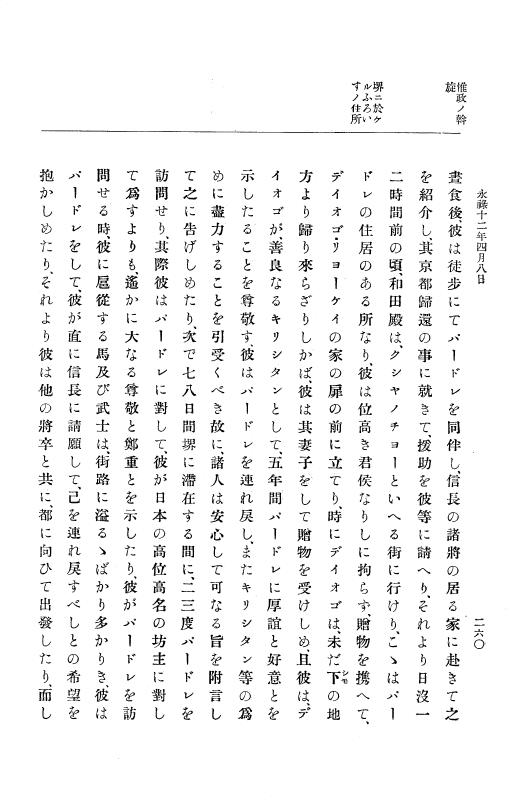 永祿十二年四月八日
二六〇
惟政ノ斡
旋
堺ニ於ケ
ルふろい
すノ住所
晝食後、彼は徒歩にてパードレを同伴し、信長の諸將の居る家に赴きて之
を紹介し、其京都歸還の事に就きて、援助を彼等に請へり、それより日沒一
二時間前の頃、和田殿は、グシヤノチヨーといへる街に行けり、こゝはパー
ドレの住居のある所なり、彼は位高き君侯なりしに拘らず、贈物を携へて、
デイオゴ・リヨーケイの家の扉の前に立てり、時にデイオゴは、未だ下の地
シモ
方より歸り來らざりしかば、彼は其妻子をして贈物を受けしめ、且彼は、デ
イオゴが、善良なるキリシタンとして、五年間パードレに厚誼と好意とを
示したることを尊敬す、彼はパードレを連れ戻し、またキリシタン等の爲
めに盡力することを引受くべき故に、諸人は安心して可なる旨を附言し
て之に告げしめたり、次で七八日間堺に滯在する間に、二三度パードレを
訪問せり、其際彼はパードレに對して、彼が日本の高位高名の坊主に對し
て爲すよりも遙かに大なる尊敬と鄭重とを示したり、彼がパードレを訪
問せる時、彼に扈從する馬及び武士は、街路に溢るゝばかり多かりき、彼は
パードレをして、彼が直に信長に請願して、己を連れ戻すべしとの希望を
抱かしめたり、それより彼は他の將卒と共に、都に向ひて出發したり、而し